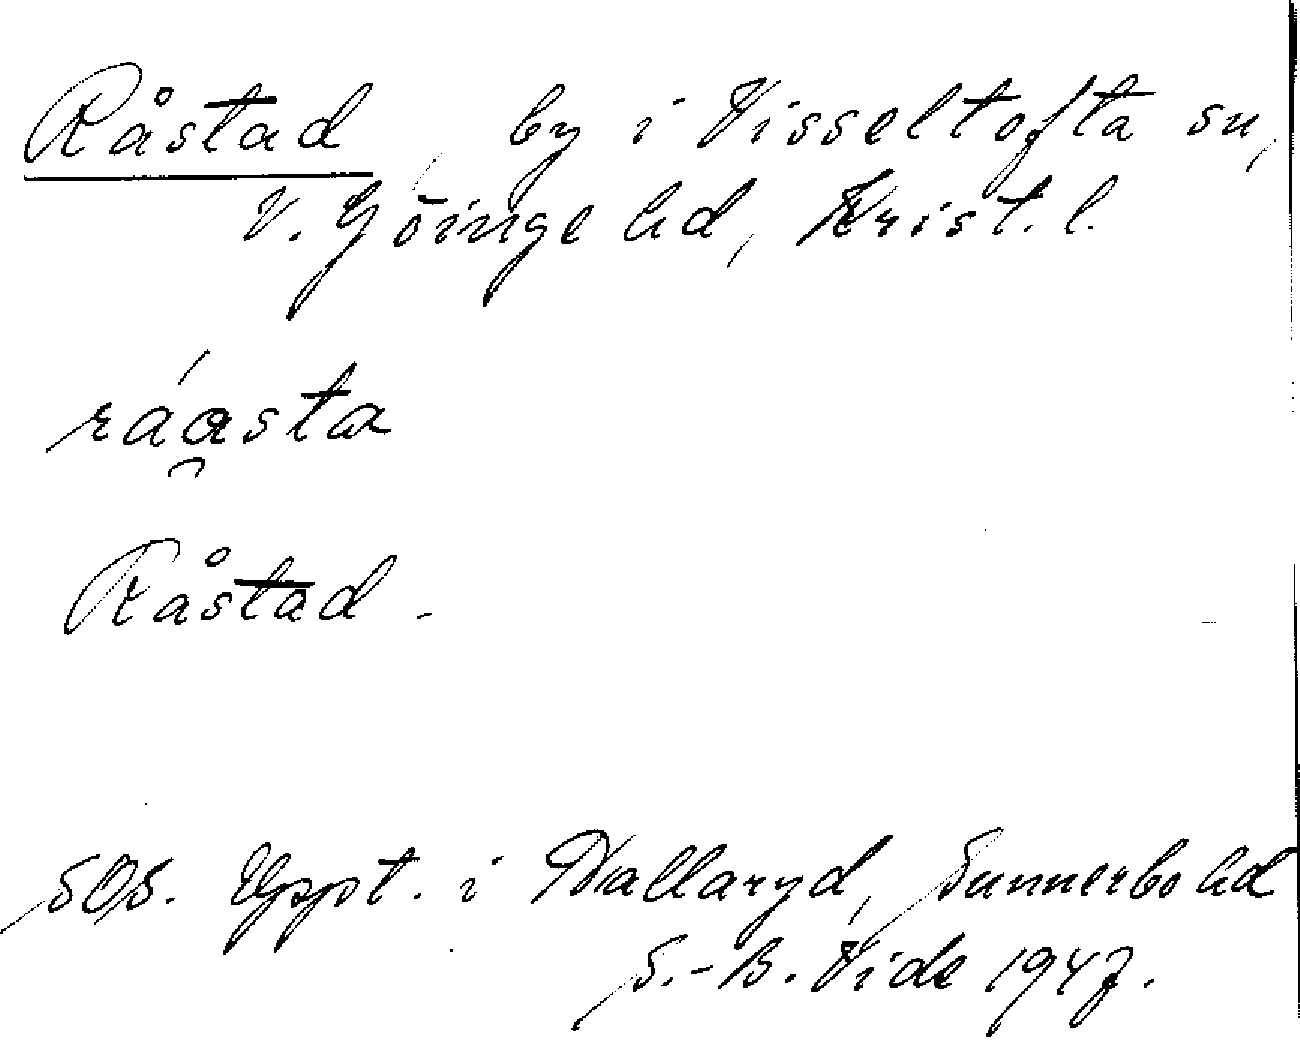 Råstad, by i Visseltofta sn,
V. Göinge hd, Krist. l.
ráasta
Råstad.
SOB. Uppt. i Hallaryd, Sunnerbo hd
S.-B. Vide 1947.